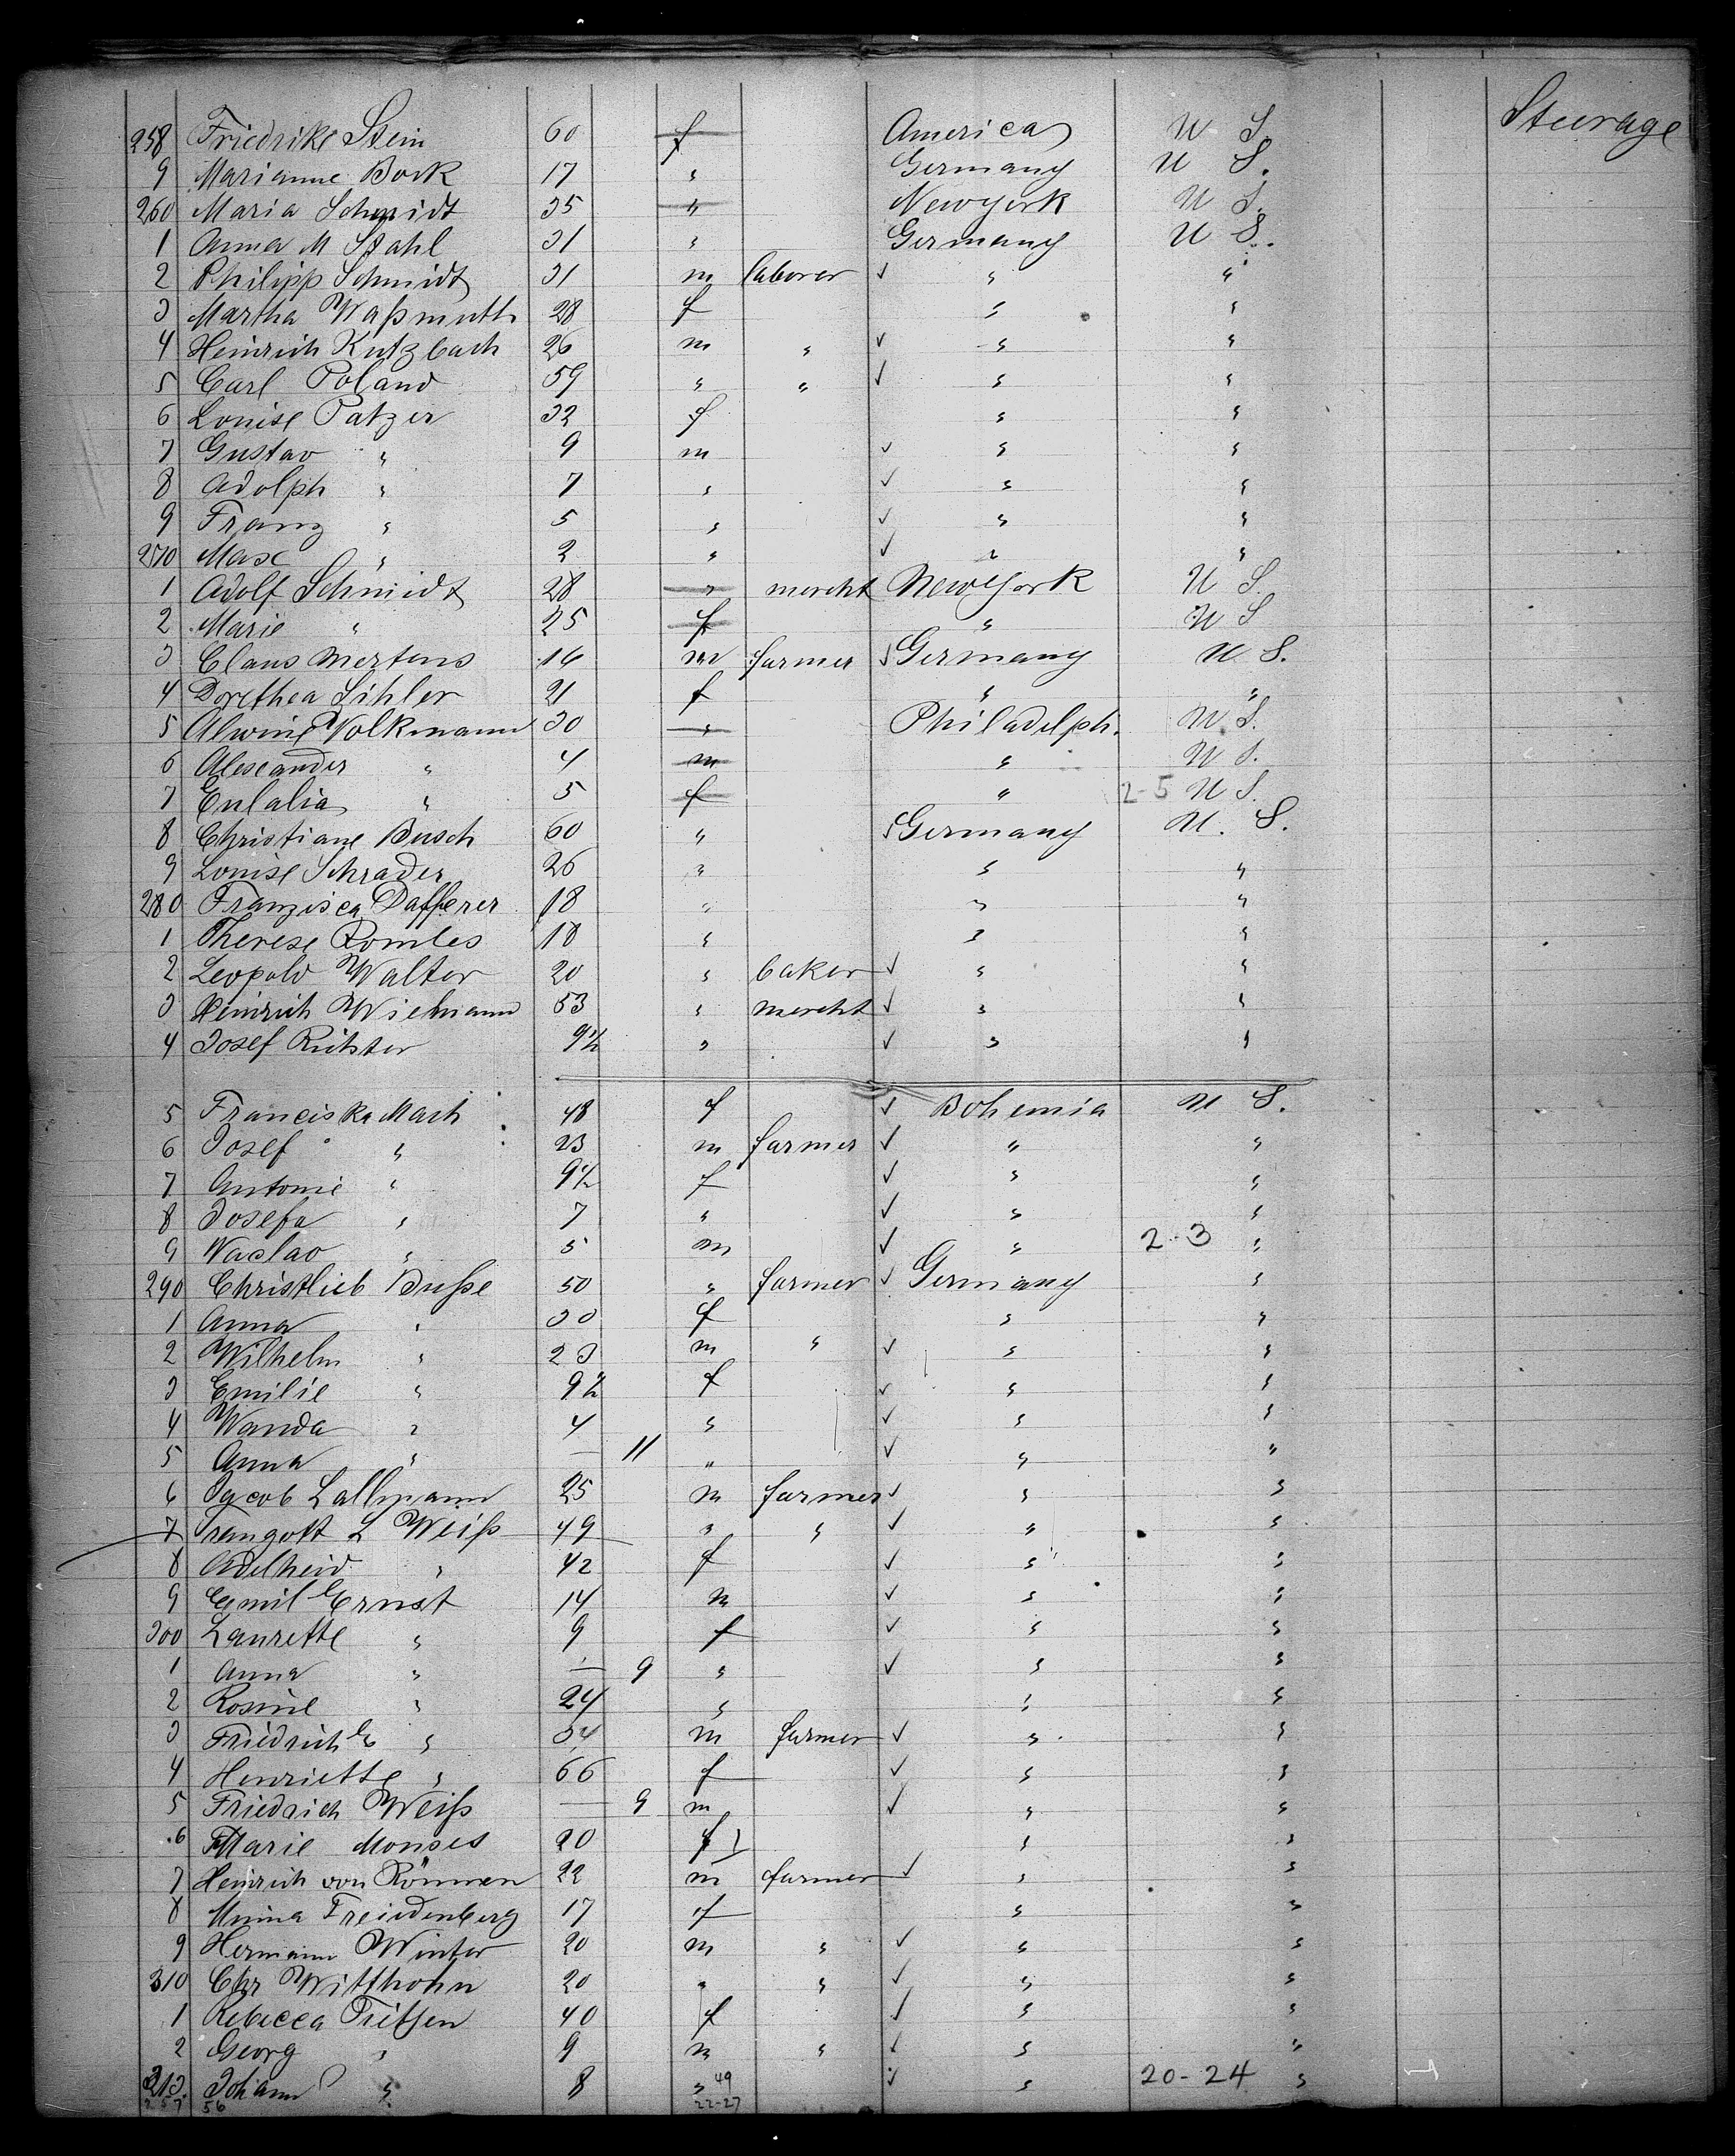 Steerage
258 Friedrike Stein 60 f America U S.
9 Marianne Bock 17 " Germany U S.
260 Maria Schmidt 35 " Newyork U S.
1 Anna M Stahl 31 " Germany U S.
2 Philipp Schmidt 31 m laborer ✓ " "
3 Martha Waßmuth 28 f " "
4 Heinrich Kutzbach 26 m " ✓ " "
5 Carl Poland 59 " " ✓ " "
6 Louise Patzer 32 f " "
7 Gustav " 9 m ✓ " "
8 Adolph " 7 " ✓ " "
9 Franz " 5 " ✓ " "
270 Max " 2 " ✓ " "
1 Adolf Schmidt 28 " mercht Newyork U S.
2 Marie " 25 f " U S
3 Claus Mertens 16 m farmer ✓ Germany U. S.
4 Dorethea Sihler 21 f " "
5 Alwine Volkmann 30 " Philadelph. U S.
6 Alexander " 4 m " U S.
7 Eulalia " 5 f " 2-5 U S.
8 Christiane Busch 60 " ✓ Germany U. S.
9 Louise Schrader 26 " " "
280 Franzisca Dafferer 18 " " "
1 Therese 18 " " "
2 Leopold Walter 20 " baker ✓ " "
3 Heinrich Wiemann 53 " mercht ✓ " "
4 Josef Richter 9½ " ✓ " "
5 Franciska Mach 48 f ✓ Bohemia U S.
6 Josef " 23 m farmer ✓ " "
7 Antonie " 9½ f ✓ " "
8 Josefa " 7 " ✓ " "
9 Waclav " 5 m ✓ " 2-3 "
290 Christlieb Buße 50 " farmer ✓ Germany "
1 Anna " 30 f " "
2 Wilhelm " 23 m " ✓ " "
3 Emilie " 9½ f ✓ " "
4 Wanda " 4 " ✓ " "
5 Anna " — 11 " ✓ " "
6 Jacob Lallmann 25 m farmer ✓ " "
7 Traugott L Weiß 49 " " ✓ " "
8 Adelheid " 42 f ✓ " "
9 Emil Ernst 14 m ✓ " "
300 Laurette " 9 f ✓ " "
1 Anna " — 9 " ✓ " "
2 Rosine " 24 " " "
3 Friedrich E " 34 m farmer ✓ " "
4 Henriette " 66 f ✓ " "
5 Friedrich Weiß — 9 m ✓ " "
6 Marie Monses 20 f " "
7 Heinrich von Rönnen 22 m farmer ✓ " "
8 Minna Freidenberg 17 f " "
9 Hermann Winter 20 m " ✓ " "
310 Chr Witthohn 20 " " ✓ " "
1 Rebecca Tietjen 40 f ✓ " "
2 Georg " 9 m " ✓ " "
313. Johann " 8 " 49 ✓ " 20-24 "
257 56 22-27